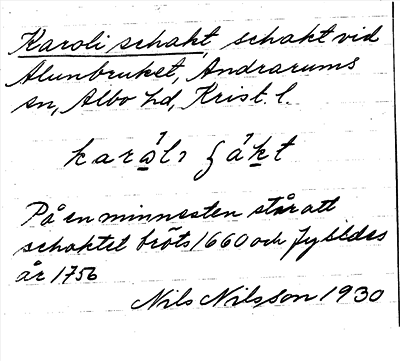 Karoli schakt, schakt vid
Alunbruket, Andrarums
sn, Albo hd, Krist. l.
På en minnessten står att
schaktet bröts 1660 och fylldes
år 1756
Nils Nilsson 1930